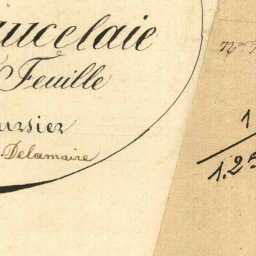 ucelaie
Feuille
ursier
Delamaire
1
1.2